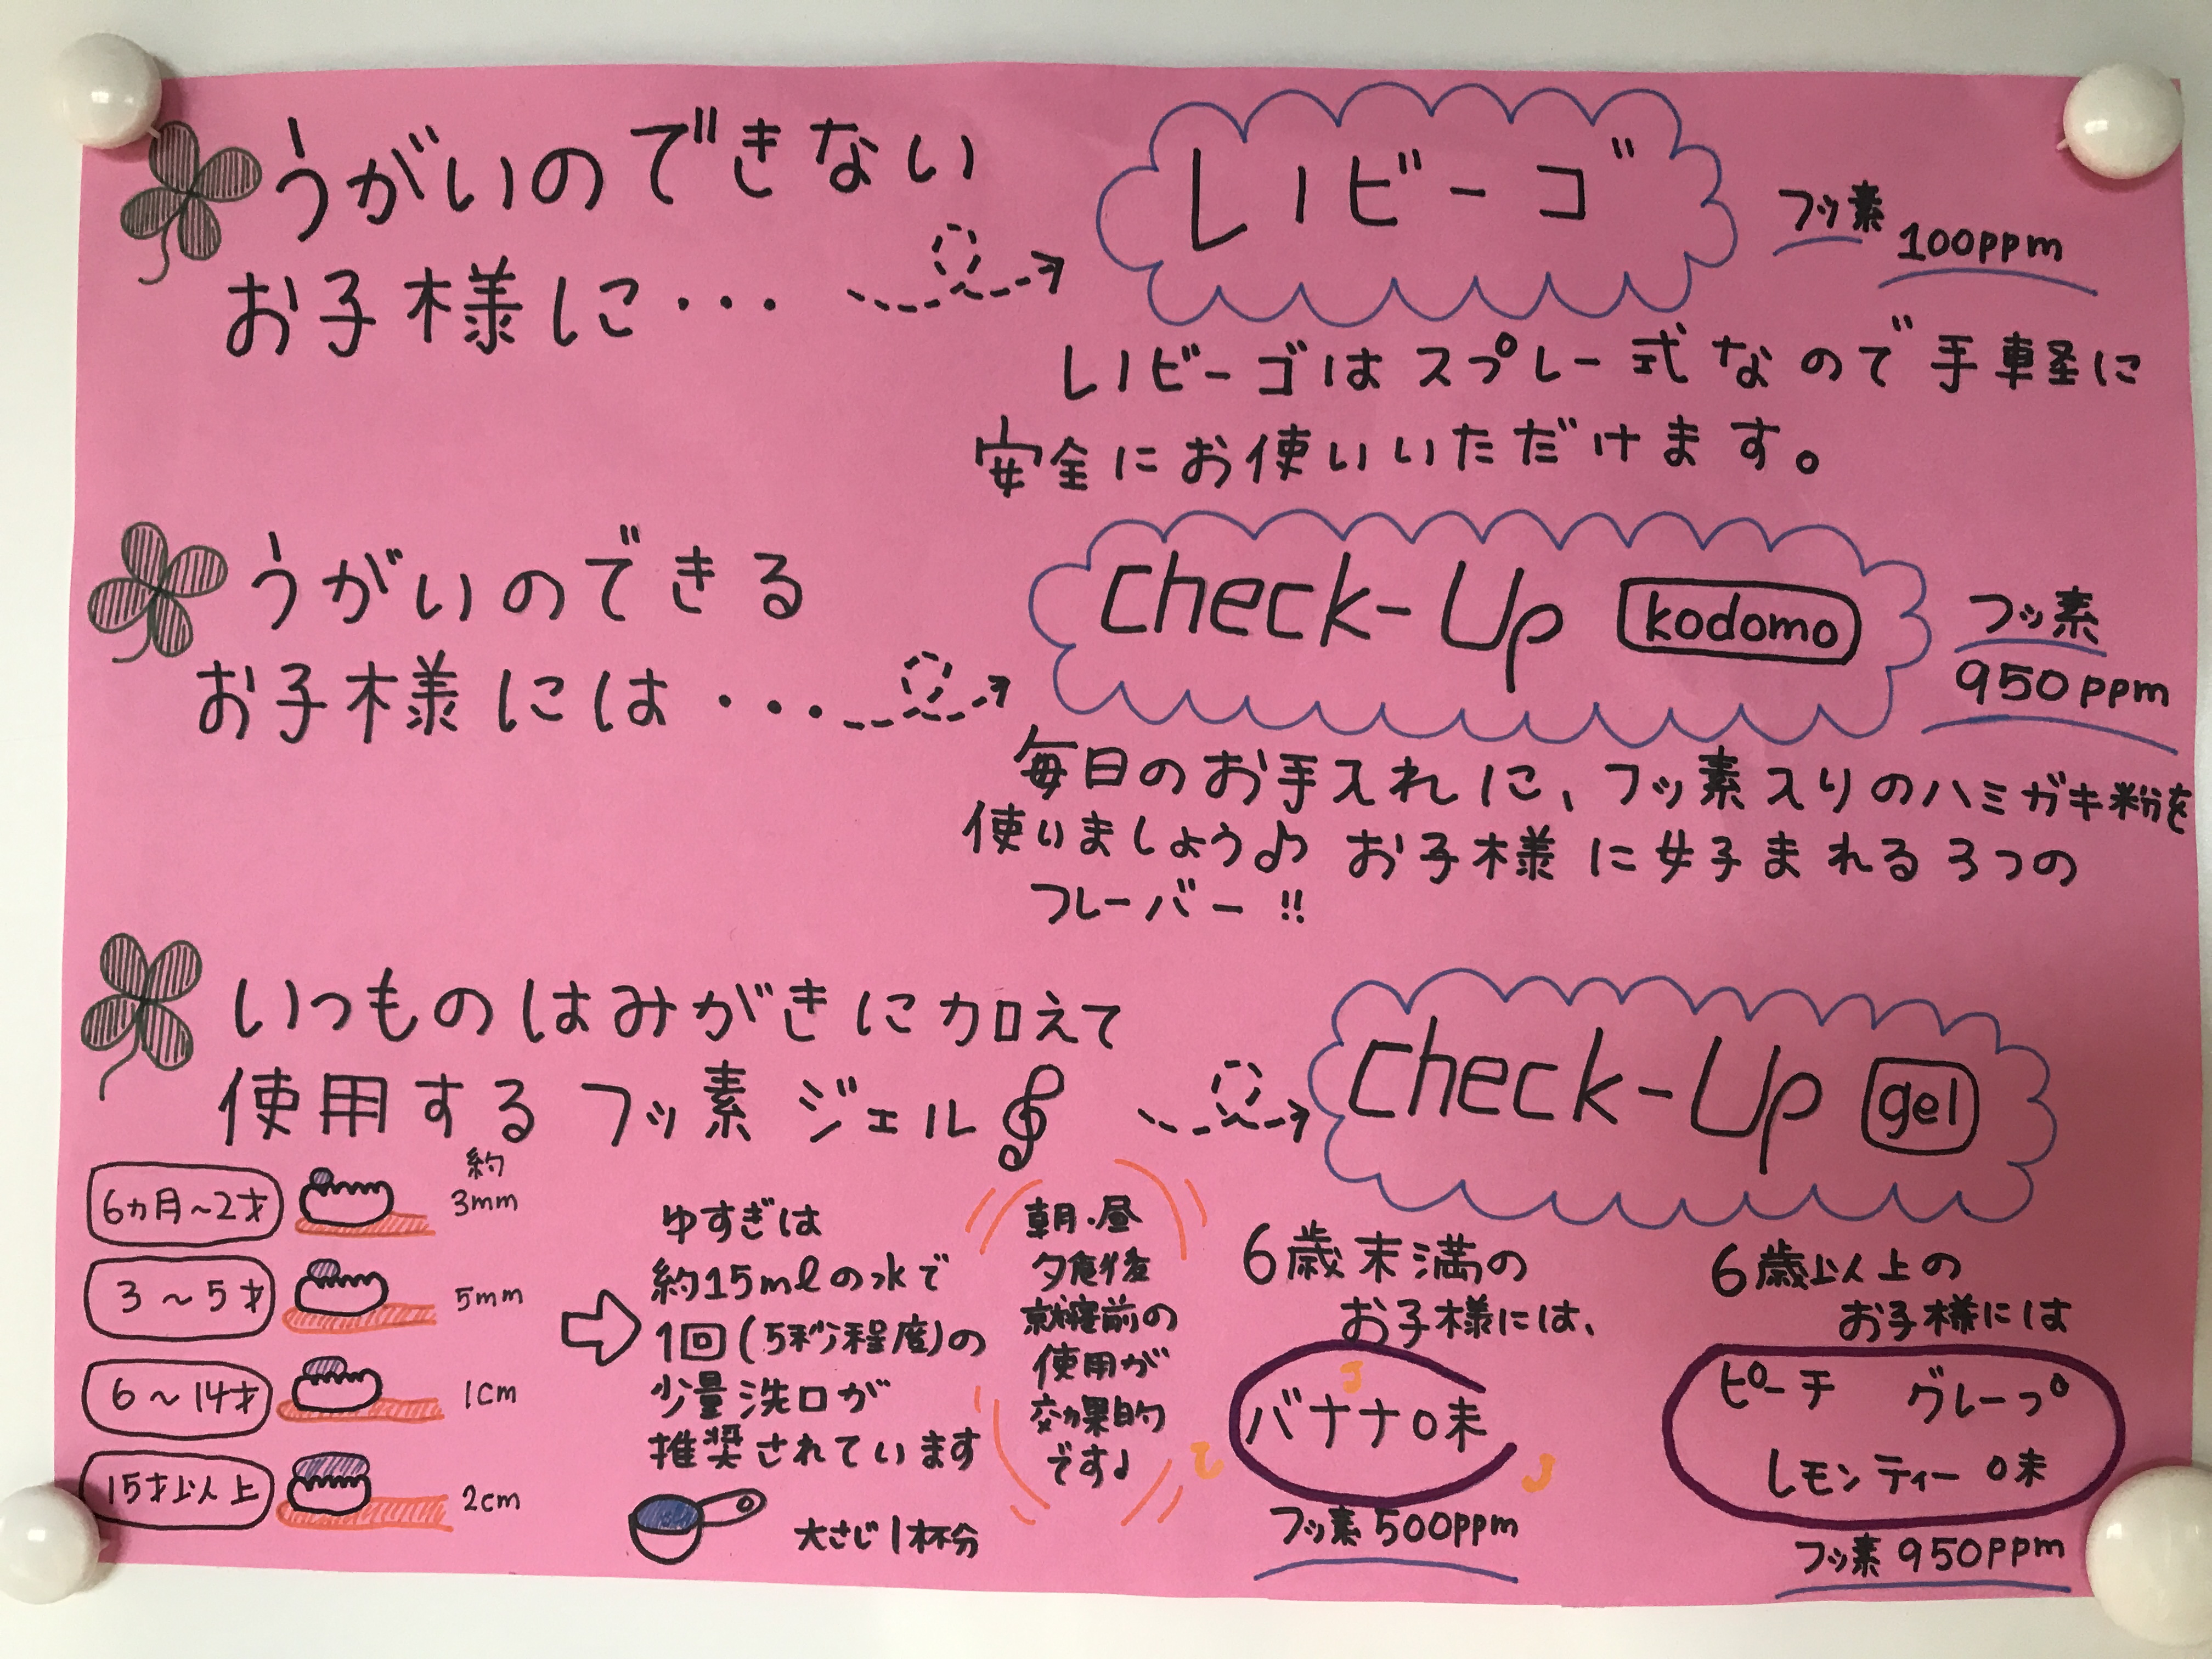 うがいのできない
お子様に・・・
レノビーゴ
フッ素
100ppm
レノビーゴは スプレー式なので手軽に
安全にお使いいただけます。
うがいのできる
お子様には・・・
Check-Up kodomo
フッ素
950ppm
毎日のお手入れに、フッ素入りのハミガキ粉を
使いましょう♫ お子様に好まれる3つの
フレーバー!!
いつものはみがきに加えて
使用する フッ素 ジェル
Check-Up gel
6ヵ月~2才
約
3mm
3~5才
5mm
6~14才
1cm
15才以上
2cm
ゆすぎは
約15mlの水で
1回(5秒程度)の
少量洗口が
推奨されています
大さじ1杯分
朝・昼
夕食後
就寝前の
使用が
効果的
です♩
6歳末満の
お子様には、
バナナ味
フッ素 500ppm
6歳以上の
お子様には
ピーチ グレープ
レモンティー味
フッ素 950ppm